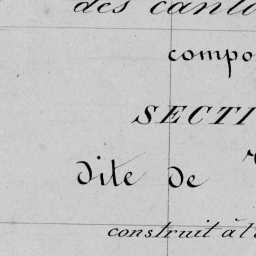 des canto
compo
SECTI
dite de
construit à l